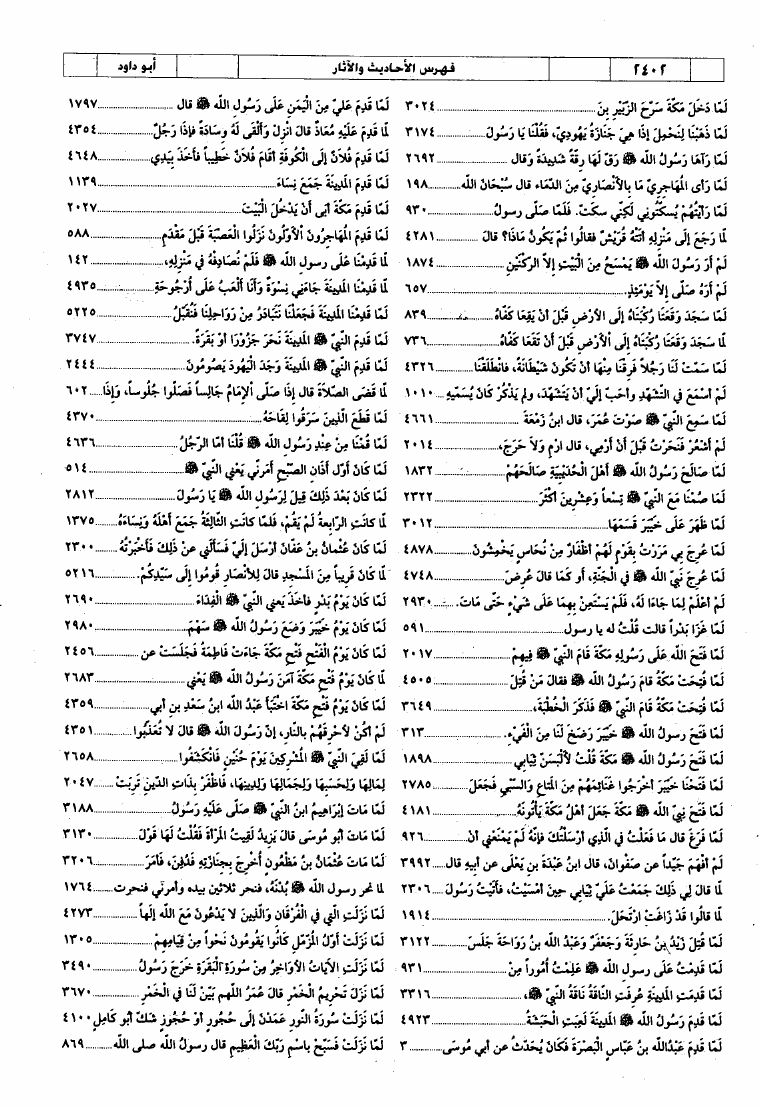 ٢٤٠٢ فهرس الأحاديث والآثار أبو داود
لَمَّا دَخَلَ مَكَّةَ سَرَّحَ الزُّبَيْرَ بنَ ........ ٣٠٢٤
لَمَّا ذَهَبْنَا لِنَحْمِلَ إذَا هِيَ جَنَازَةُ يَهُودِيّ، فَقُلْنَا يَا رَسُولَ ........ ٣١٧٤
لَمَّا رَآهَا رَسُولُ الله ﷺ رَقَّ لَهَا رِقَّةً شَدِيدَةً وَقال ........ ٢٦٩٢
لَمَّا رَأى المُهَاجِرِيُّ مَا بالأنْصَارِيِّ مِنَ الدِّمَاءِ قال سُبْحَانَ الله ........ ١٩٨
لَمَّا رَأَيْتُهُمْ يُسَكِّتُونِي لَكِنِّي سَكَتُّ. فَلَمَّا صَلَّى رسولُ ........ ٩٣٠
لَمَّا رَجَعَ إلَى مَنْزِلِهِ أتَتْهُ قُرَيْشٌ فقالُوا ثُمَّ يَكُونُ مَاذَا؟ قالَ ........ ٤٢٨١
لَمْ أرَ رَسُولَ الله ﷺ يَمْسَحُ مِنَ الْبَيْتِ إلاَّ الرُّكْنَيْنِ ........ ١٨٧٤
لَمْ أرَهُ صَلَّى إلاَّ يَوْمَئِذٍ ........ ٦٥٧
لَمَّا سَجَدَ وَقَعَتَا رُكْبَتَاهُ إلَى الأرْضِ قَبْلَ أنْ يَقَعَا كَفَّاهُ ........ ٨٣٩
لَمَّا سَجَدَ وَقَعَتَا رُكْبَتَاهُ إلَى الأرْضِ قَبْلَ أنْ تَقَعَا كَفَّاهُ ........ ٧٣٦
لَمَّا سَمَّتْ لَنَا رَجُلاً فَرِقْنَا مِنْهَا أنْ تَكُونَ شَيْطَانَةً، فانْطَلَقْنَا ........ ٤٣٢٦
لَمْ أسْمَعْ في التَّشَهُّدِ وأحَبُّ إلَيَّ أنْ يَتَشَهَّدَ، ولم يَذْكُرْ كَانَ يُسَمِّيهِ ........ ١٠١٠
لَمَّا سَمِعَ النَّبيُّ ﷺ صَوْتَ عُمَرَ، قال ابنُ زَمْعَةَ ........ ٤٦٦١
لَمْ أشْعُرْ فَنَحَرْتُ قَبْلَ أنْ أرْمِيَ، قال ارْمِ وَلاَ حَرَجَ، ........ ٢٠١٤
لَمَّا صَالَحَ رَسُولُ الله ﷺ أهْلَ الْحُدَيْبِيَةِ صَالَحَهُمْ ........ ١٨٣٢
لَمَّا صُمْنَا مَعَ النَّبيِّ ﷺ تِسْعاً وَعِشْرِينَ أكْثَرَ ........ ٢٣٢٢
لَمَّا ظَهَرَ عَلَى خَيْبَرَ قَسَمَهَا ........ ٣٠١٢
لَمَّا عُرِجَ بِي مَرَرْتُ بِقَوْمٍ لَهُمْ أظْفَارٌ مِنْ نُحَاسٍ يَخْمِشُونَ ........ ٤٨٧٨
لَمَّا عُرِجَ نَبيِّ الله ﷺ في الْجَنَّةِ، أو كَمَا قالَ عُرِضَ ........ ٤٧٤٨
لَمْ أعْلَمْ لِمَا جَاءَا لَهُ، فَلَمْ يَسْتَعِنْ بِهِمَا عَلَى شَيْءٍ حَتَّى مَاتَ. ........ ٢٩٣٠
لَمَّا غَزَا بَدْراً قالت قُلْتُ له يا رسولَ ........ ٥٩١
لَمَّا فَتَحَ الله عَلَى رَسُولِهِ مَكَّةَ قَامَ النَّبيُّ ﷺ فِيهِمْ ........ ٢٠١٧
لَمَّا فُتِحَتْ مَكَّةُ قَامَ رَسُولُ الله ﷺ فقالَ مَنْ قُتِلَ ........ ٤٥٠٥
لَمَّا فُتِحَتْ مَكَّةُ قَامَ النَّبيُّ ﷺ فَذَكَرَ الْخُطْبَةَ، ........ ٣٦٤٩
لَمَّا فَتَحَ رسولُ الله ﷺ خَيْبَرَ رَضَخَ لَنَا مِنَ الْفَيْءِ. ........ ٣١٣
لَمَّا فَتَحَ رَسُولُ الله ﷺ مَكَّةَ قُلْتُ لألْبَسَنَّ ثِيَابِي ........ ١٨٩٨
لَمَّا فَتَحْنَا خَيْبَرَ أخْرَجُوا غَنَائِمَهُمْ مِنَ المَتَاعِ وَالسَّبْيِ فَجَعَلَ ........ ٢٧٨٥
لَمَّا فَتَحَ نَبيُّ الله ﷺ مَكَّةَ جَعَلَ أهْلُ مَكَّةَ يَأْتُونَهُ ........ ٤١٨١
لَمَّا فَرَغَ قال مَا فَعَلْتَ في الَّذِي أرْسَلْتُكَ فإنَّهُ لَمْ يَمْنَعْنِي أنْ ........ ٩٢٦
لَمْ أفْهَمْ جَيِّداً عن صَفْوَانَ، قال ابنُ عَبْدَةَ بنِ يَعْلَى عن أبِيهِ قال ........ ٣٩٩٢
لَمَّا قالَ لِي ذَلِكَ جَمَعْتُ عَلَيَّ ثِيَابِي حِينَ أمْسَيْتُ، فأتَيْتُ رَسُولَ ........ ٢٣٠٦
لَمَّا قالُوا قَدْ زَاغَتْ ارْتَحَلَ. ........ ١٩١٤
لَمَّا قُتِلَ زَيْدُ بنُ حَارِثَةَ وَجَعْفَرٌ وَعَبْدُ الله بنُ رَوَاحَةَ جَلَسَ ........ ٣١٢٢
لَمَّا قَدِمْتُ عَلَى رسولِ الله ﷺ عَلِمْتُ أُمُوراً مِنْ ........ ٩٣١
لَمَّا قَدِمَتِ المَدِينَةَ عَرِفَتِ النَّاقَةُ نَاقَةُ النَّبيِّ ﷺ، ........ ٣٣١٦
لَمَّا قَدِمَ رَسُولُ الله ﷺ المَدِينَةَ لَعِبَتِ الْحَبَشَةُ ........ ٤٩٢٣
لَمَّا قَدِمَ عَبْدُالله بنُ عَبَّاسٍ الْبَصْرَةَ فَكَانَ يُحَدَّثُ عن أبي مُوسَى ........ ٣
لَمَّا قَدِمَ عَلِيٌّ مِنَ الْيَمَنِ عَلَى رَسُولِ الله ﷺ قال ........ ١٧٩٧
لَمَّا قَدِمَ عَلَيْهِ مُعَاذٌ قالَ انْزِلْ وَألْقَى لَهُ وِسَادَةً فإذَا رَجُلٌ ........ ٤٣٥٤
لَمَّا قَدِمَ فُلاَنٌ إلَى الْكُوفَةِ أقَامَ فُلاَنٌ خَطِيباً فأخَذَ بِيَدِي ........ ٤٦٤٨
لَمَّا قَدِمَ المَدِينَةَ جَمَعَ نِسَاءَ ........ ١١٣٩
لَمَّا قَدِمَ مَكَّةَ أبَى أنْ يَدْخُلَ الْبَيْتَ ........ ٢٠٢٧
لَمَّا قَدِمَ المُهَاجِرُونَ الأوَّلُونَ نَزَلُوا الْعَصْبَةَ قَبْلَ مَقْدَمِ ........ ٥٨٨
لَمَّا قَدِمْنَا عَلَى رسولِ الله ﷺ فَلَمْ نُصَادِفْهُ في مَنْزِلِهِ، ........ ١٤٢
لَمَّا قَدِمْنَا المَدِينَةَ جَاءَنِي نِسْوَةٌ وَأنَا ألْعَبُ عَلَى أُرْجُوحَةٍ ........ ٤٩٣٥
لَمَّا قَدِمْنَا المَدِينَةَ فَجَعَلْنَا نَتَبَادَرُ مِنْ رَوَاحِلِنَا فَنُقَبِّلُ ........ ٥٢٢٥
لَمَّا قَدِمَ النَّبيُّ ﷺ المَدِينَةَ نَحَرَ جَزُورًا أوْ بَقَرَةً. ........ ٣٧٤٧
لَمَّا قَدِمَ النَّبيُّ ﷺ المَدِينَةَ وَجَدَ الْيَهُودَ يَصُومُونَ ........ ٢٤٤٤
لَمَّا قَضَى الصَّلاَةَ قال إذَا صَلَّى الإمَامُ جَالِساً فَصَلُّوا جُلُوساً، وَإذَا ........ ٦٠٢
لَمَّا قَطَعَ الَّذِينَ سَرَقُوا لِقَاحَهُ ........ ٤٣٧٠
لَمَّا قُمْنَا مِنْ عِنْدِ رَسُولِ الله ﷺ قُلْنَا أمَّا الرَّجُلُ ........ ٤٦٣٦
لَمَّا كَانَ أوَّلُ أذَانِ الصُّبْحِ أمَرَنِي يَعْنِي النَّبيَّ ﷺ ........ ٥١٤
لَمَّا كَانَ بَعْدَ ذَلِكَ قِيلَ لِرَسُولِ الله ﷺ يَا رَسُولَ ........ ٢٨١٢
لَمَّا كَانَتِ الرَّابِعَةُ لَمْ يَقُمْ، فَلَمَّا كَانَتِ الثَّالِثَةُ جَمَعَ أهْلَهُ وَنِسَاءَهُ ........ ١٣٧٥
لَمَّا كَانَ عُثْمَانُ بنُ عَفَّانَ أرْسَلَ إلَيَّ فَسَألَنِي عن ذَلِكَ فَأخْبَرْتُهُ ........ ٢٣٠٠
لَمَّا كَانَ قَرِيباً مِنَ المَسْجِدِ قال لِلأنْصَارِ قُومُوا إلَى سَيِّدِكُمْ. ........ ٥٢١٦
لَمَّا كَانَ يَوْمُ بَدْرٍ فأخَذَ يَعني النَّبيَّ ﷺ الْفِدَاءَ ........ ٢٦٩٠
لَمَّا كَانَ يَوْمُ خَيْبَرَ وَضَعَ رَسُولُ الله ﷺ سَهْمَ ........ ٢٩٨٠
لَمَّا كَانَ يَوْمُ الْفَتْحِ فَتْحِ مَكَّةَ جَاءَتْ فَاطِمَةُ فَجَلَسَتْ عن ........ ٢٤٥٦
لَمَّا كَانَ يَوْمُ فَتْحِ مَكَّةَ آمَنَ رَسُولُ الله ﷺ يَعْنِي ........ ٢٦٨٣
لَمَّا كَانَ يَوْمُ فَتْحِ مَكَّةَ اخْتَبَأ عَبْدُ الله ابنُ سَعْدِ بنِ أبي ........ ٤٣٥٩
لَمْ أكُنْ لأحْرِقَهُمْ بالنَّارِ، إنَّ رَسُولَ الله ﷺ قالَ لا تُعَذِّبُوا ........ ٤٣٥١
لَمَّا لَقِيَ النَّبيُّ ﷺ المُشْرِكِينَ يَوْمَ حُنَيْنٍ فَانْكَشَفُوا ........ ٢٦٥٨
لِمَالِهَا وَلِحَسَبِهَا وَلِجَمَالِهَا وَلِدِينِهَا، فَاظْفَرْ بِذَاتِ الدِّينِ تَرِبَتْ ........ ٢٠٤٧
لَمَّا مَاتَ إبْرَاهِيمُ ابنُ النَّبيِّ ﷺ صَلَّى عَلَيْهِ رَسُولُ ........ ٣١٨٨
لَمَّا مَاتَ أبُو مُوسَى قالَ يَزِيدُ لَقِيتُ المَرْأةَ فَقُلْتُ لَهَا قَوْلَ ........ ٣١٣٠
لَمَّا مَاتَ عُثْمَانُ بنُ مَظْعُونٍ أُخْرِجَ بِجَنَازَتِهِ فَدُفِنَ، فَأمَرَ ........ ٣٢٠٦
لما نحر رسول الله ﷺ بُدْنَهُ، فنحر ثلاثين بيده وأمرني فنحرت ........ ١٧٦٤
لَمَّا نَزَلَتِ الَّتِي في الْفُرْقَانِ وَالَّذِينَ لا يَدْعُونَ مَعَ الله إلَهاً ........ ٤٢٧٣
لَمَّا نَزَلَتْ أوَّلُ المُزَّمِّلِ كَانُوا يَقُومُونَ نَحْواً مِنْ قِيَامِهِمْ ........ ١٣٠٥
لَمَّا نَزَلَتِ الآيَاتُ الأوَاخِرُ مِنْ سُورَةِ الْبَقَرَةِ خَرَجَ رَسُولُ ........ ٣٤٩٠
لَمَّا نَزَلَ تَحْرِيمُ الْخَمْرِ قالَ عُمَرُ اللهم بَيِّنْ لَنَا في الْخَمْرِ ........ ٣٦٧٠
لَمَّا نَزَلَتْ سُورَةُ النُّورِ عَمَدْنَ إلَى حُجُورٍ أوْ حُجُوزٍ شَكَّ أبُو كَامِلٍ ٤١٠٠
لَمَّا نَزَلَتْ فَسَبِّحْ باسْمِ رَبِّكَ الْعَظِيمِ قال رسولُ الله صلى الله ........ ٨٦٩